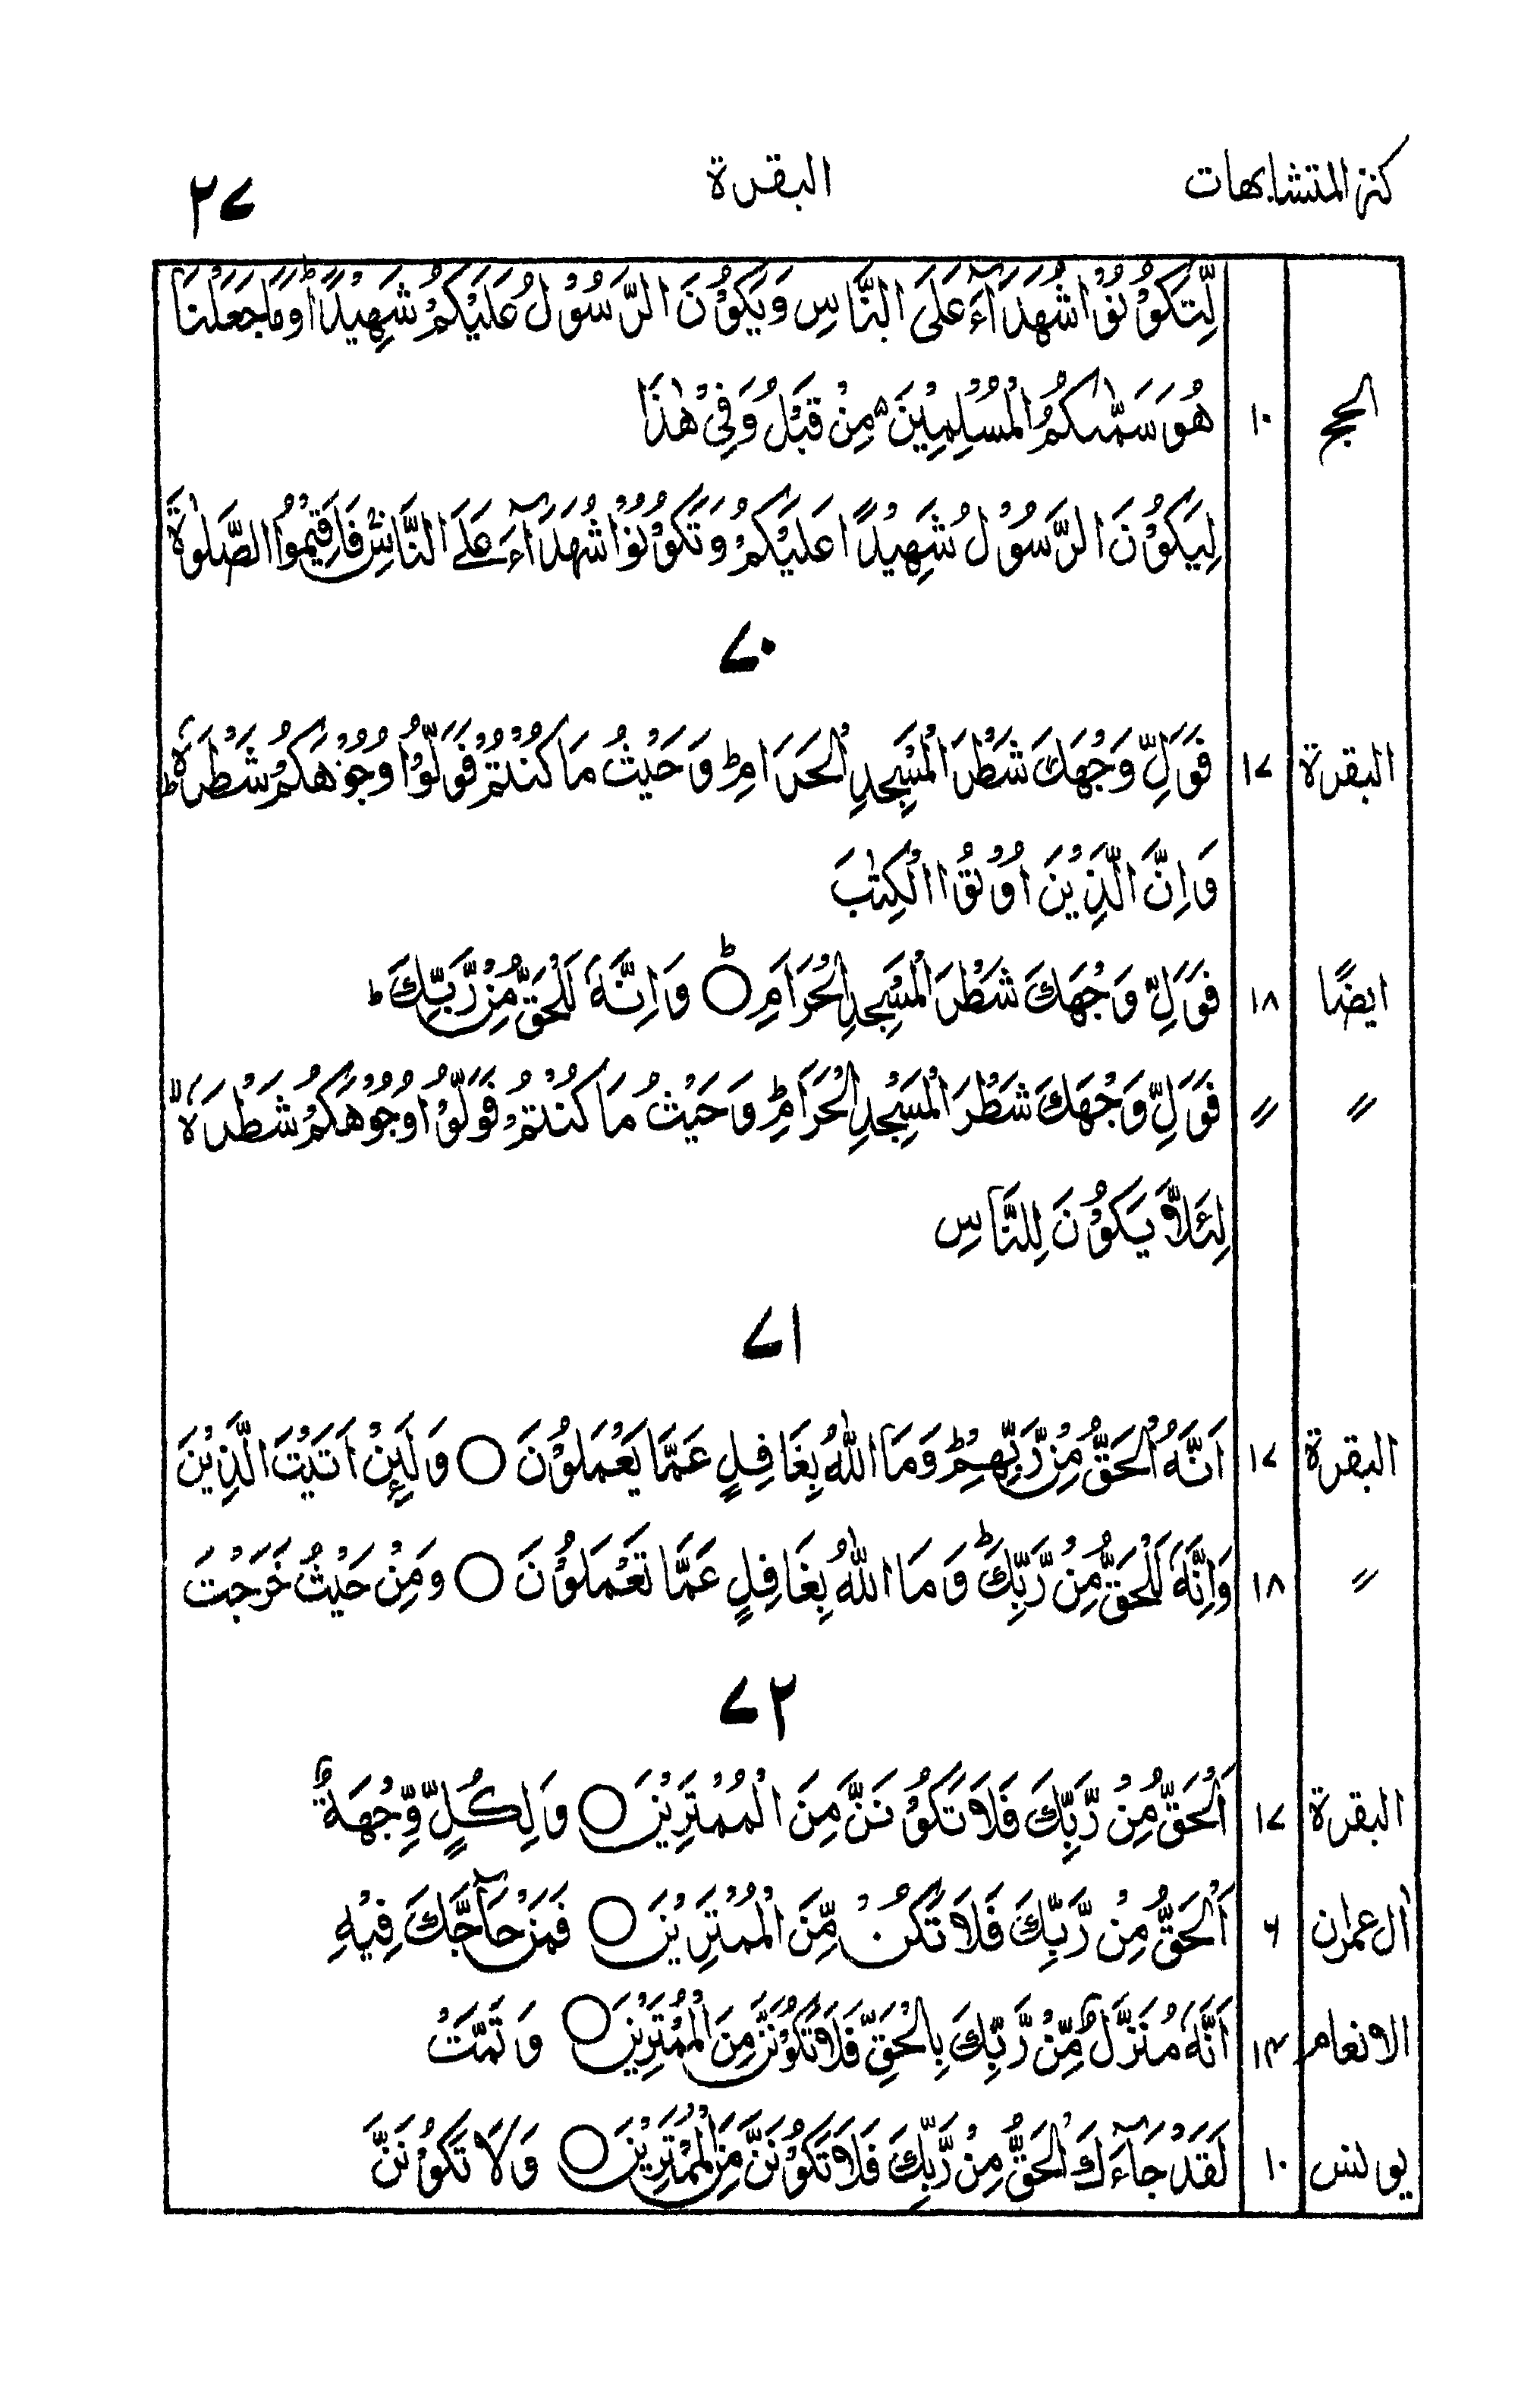 كنز المتشابهات البقرة ۲۷
لِّتَكُوْنُوْا شُهَدَآءَ عَلَى النَّاسِ وَيَكُوْنَ الرَّسُوْلُ عَلَيْكُمْ شَهِيْدًا ؕ وَمَا جَعَلْنَا
الحج ۱۰ هُوَ سَمّٰىكُمُ الْمُسْلِمِيْنَ ۙ مِنْ قَبْلُ وَفِىْ هٰذَا
لِيَكُوْنَ الرَّسُوْلُ شَهِيْدًا عَلَيْكُمْ وَتَكُوْنُوْا شُهَدَآءَ عَلَى النَّاسِ ۚ فَاَقِيْمُوا الصَّلٰوةَ
۷۰
البقرة ۱۷ فَوَلِّ وَجْهَكَ شَطْرَ الْمَسْجِدِ الْحَرَامِ ؕ وَحَيْثُ مَا كُنْتُمْ فَوَلُّوْا وُجُوْهَكُمْ شَطْرَهٗ ؕ
وَاِنَّ الَّذِيْنَ اُوْتُوا الْكِتٰبَ
ايضًا ۱۸ فَوَلِّ وَجْهَكَ شَطْرَ الْمَسْجِدِ الْحَرَامِ ؕ ○ وَاِنَّهٗ لَلْحَقُّ مِنْ رَّبِّكَ ؕ
〃 〃 فَوَلِّ وَجْهَكَ شَطْرَ الْمَسْجِدِ الْحَرَامِ ؕ وَحَيْثُ مَا كُنْتُمْ فَوَلُّوْا وُجُوْهَكُمْ شَطْرَهٗ ۙ
لِئَلَّا يَكُوْنَ لِلنَّاسِ
۷۱
البقرة ۱۷ اَنَّهُ الْحَقُّ مِنْ رَّبِّهِمْ ؕ وَمَا اللّٰهُ بِغَافِلٍ عَمَّا يَعْمَلُوْنَ ○ وَلَئِنْ اَتَيْتَ الَّذِيْنَ
〃 ۱۸ وَاِنَّهٗ لَلْحَقُّ مِنْ رَّبِّكَ ؕ وَمَا اللّٰهُ بِغَافِلٍ عَمَّا تَعْمَلُوْنَ ○ وَمِنْ حَيْثُ خَرَجْتَ
۷۲
البقرة ۱۷ اَلْحَقُّ مِنْ رَّبِّكَ فَلَا تَكُوْنَنَّ مِنَ الْمُمْتَرِيْنَ ○ وَلِكُلٍّ وِّجْهَةٌ
اٰل عمرٰن ۶ اَلْحَقُّ مِنْ رَّبِّكَ فَلَا تَكُنْ مِّنَ الْمُمْتَرِيْنَ ○ فَمَنْ حَآجَّكَ فِيْهِ
الانعام ۱۴ اَنَّهٗ مُنَزَّلٌ مِّنْ رَّبِّكَ بِالْحَقِّ فَلَا تَكُوْنَنَّ مِنَ الْمُمْتَرِيْنَ ○ وَتَمَّتْ
يونس ۱۰ لَقَدْ جَآءَكَ الْحَقُّ مِنْ رَّبِّكَ فَلَا تَكُوْنَنَّ مِنَ الْمُمْتَرِيْنَ ○ وَلَا تَكُوْنَنَّ